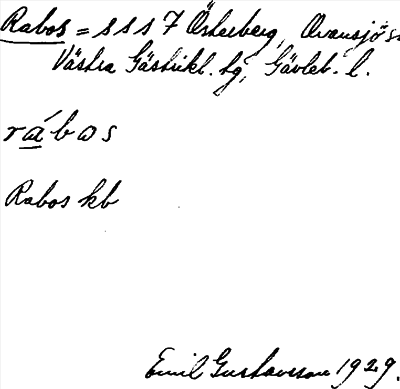 Rabos = s s s 7 Österberg, Ovansjö s.
Västra Gästrikl. tg, Gävleb. l.
rábos
Rabos kb
Emil Gustavsson 1929.